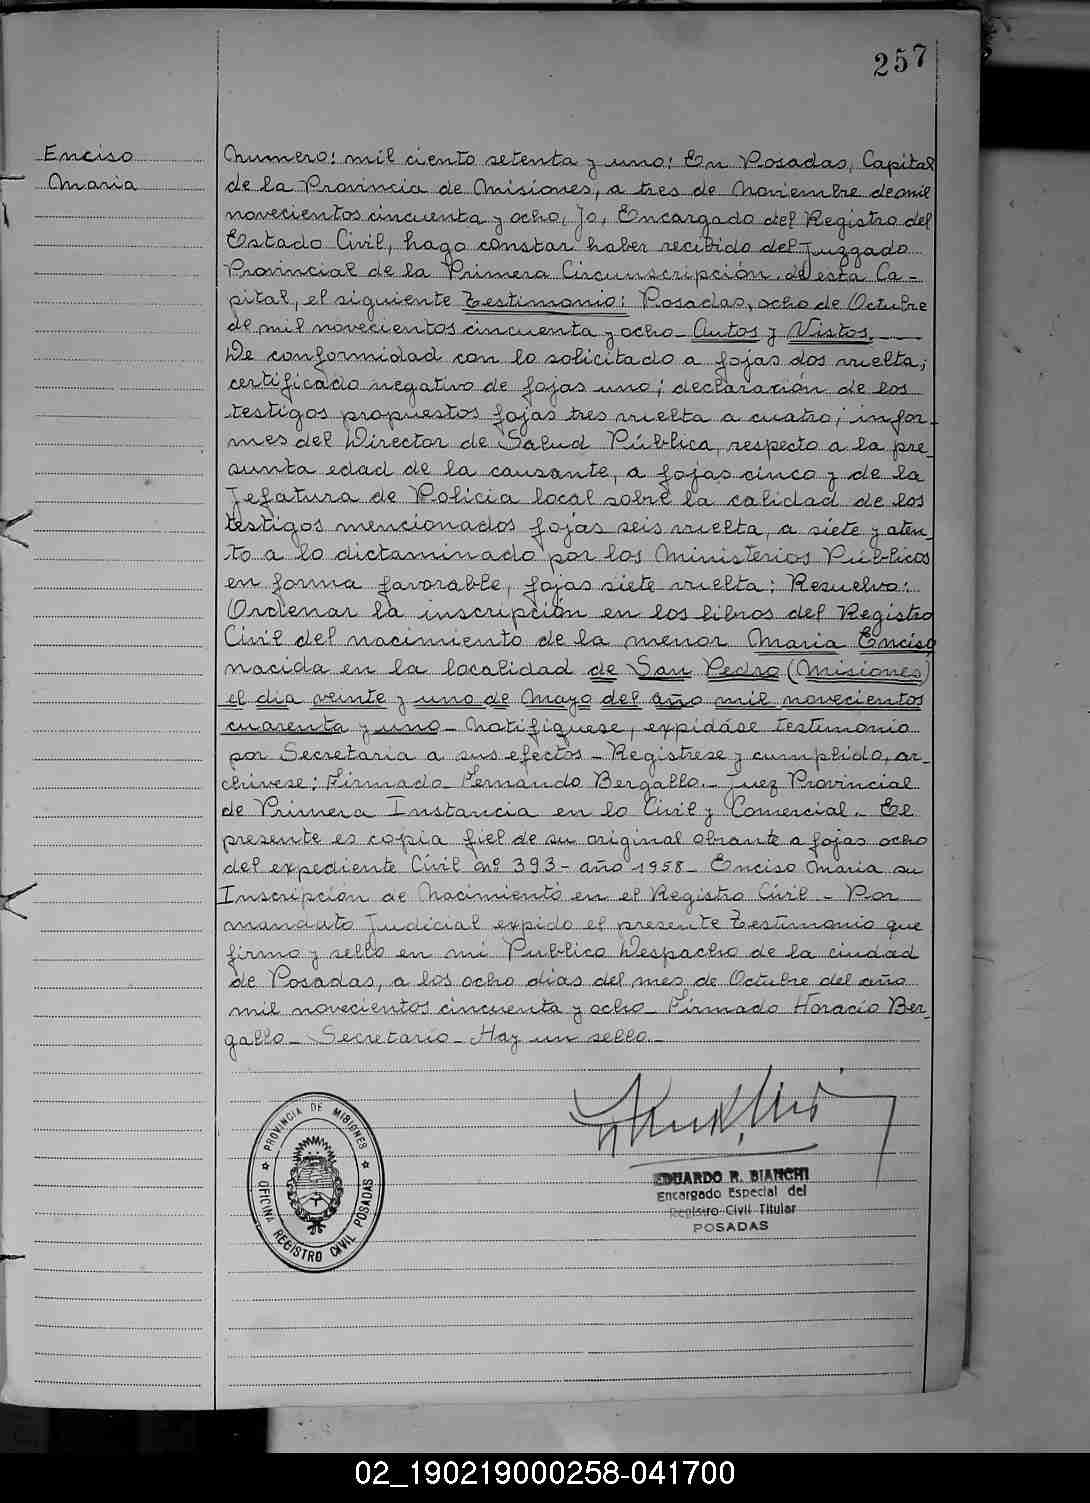 257
Enciso
Maria
Numero: mil ciento setenta y uno: En Posadas, Capital
de la Provincia de Misiones, a tres de Noviembre de mil
novecientos cincuenta y ocho, Jo, Encargado del Registro del
Estado Civil, hago constar haber recibido del Juzgado
Provincial de la Primera Circunscripción, de esta Ca-
pital, el siguiente Testimonio: Posadas, ocho de Octubre
de mil novecientos cincuenta y ocho - Autos y Vistos.
De conformidad con lo solicitado a fojas dos vuelta;
certificado negativo de fojas uno; declaración de los
testigos propuestos fojas tres vuelta a cuatro; infor-
mes del Director de Salud Pública, respecto a la pre-
sunta edad de la causante, a fojas cinco y de la
Jefatura de Policia local sobre la calidad de los
testigos mencionados fojas seis vuelta, a siete y aten-
to a lo dictaminado por los Ministerios Públicos
en forma favorable, fojas siete vuelta: Resuelvo:
Ordenar la inscripción en los libros del Registro
Civil del nacimiento de la menor Maria Enciso
nacida en la localidad de San Pedro (Misiones)
el dia veinte y uno de Mayo del año mil novecientos
cuarenta y uno - Notifiquese, expidáse testimonio
por Secretaria a sus efectos - Registrese y cumplido, ar-
chivese: Firmado - Fernando Bergallo. - Juez Provincial
de Primera Instancia en lo Civil y Comercial. - El
presente es copia fiel de su original obrante a fojas ocho
del expediente Civil nº 393 - año 1958 - Enciso Maria su
Inscripción de Nacimiento en el Registro Civil - Por
mandato Judicial expido el presente Testimonio que
firmo y sello en mi Publico Despacho de la ciudad
de Posadas, a los ocho dias del mes de Octubre del año
mil novecientos cincuenta y ocho - Firmado Horacio Ber-
gallo - Secretario - Hay un sello. -
PROVINCIA DE MISIONES
OFICINA REGISTRO CIVIL POSADAS
EDUARDO R. BIANCHI
Encargado Especial del
Registro Civil Titular
POSADAS
02_190219000258-041700